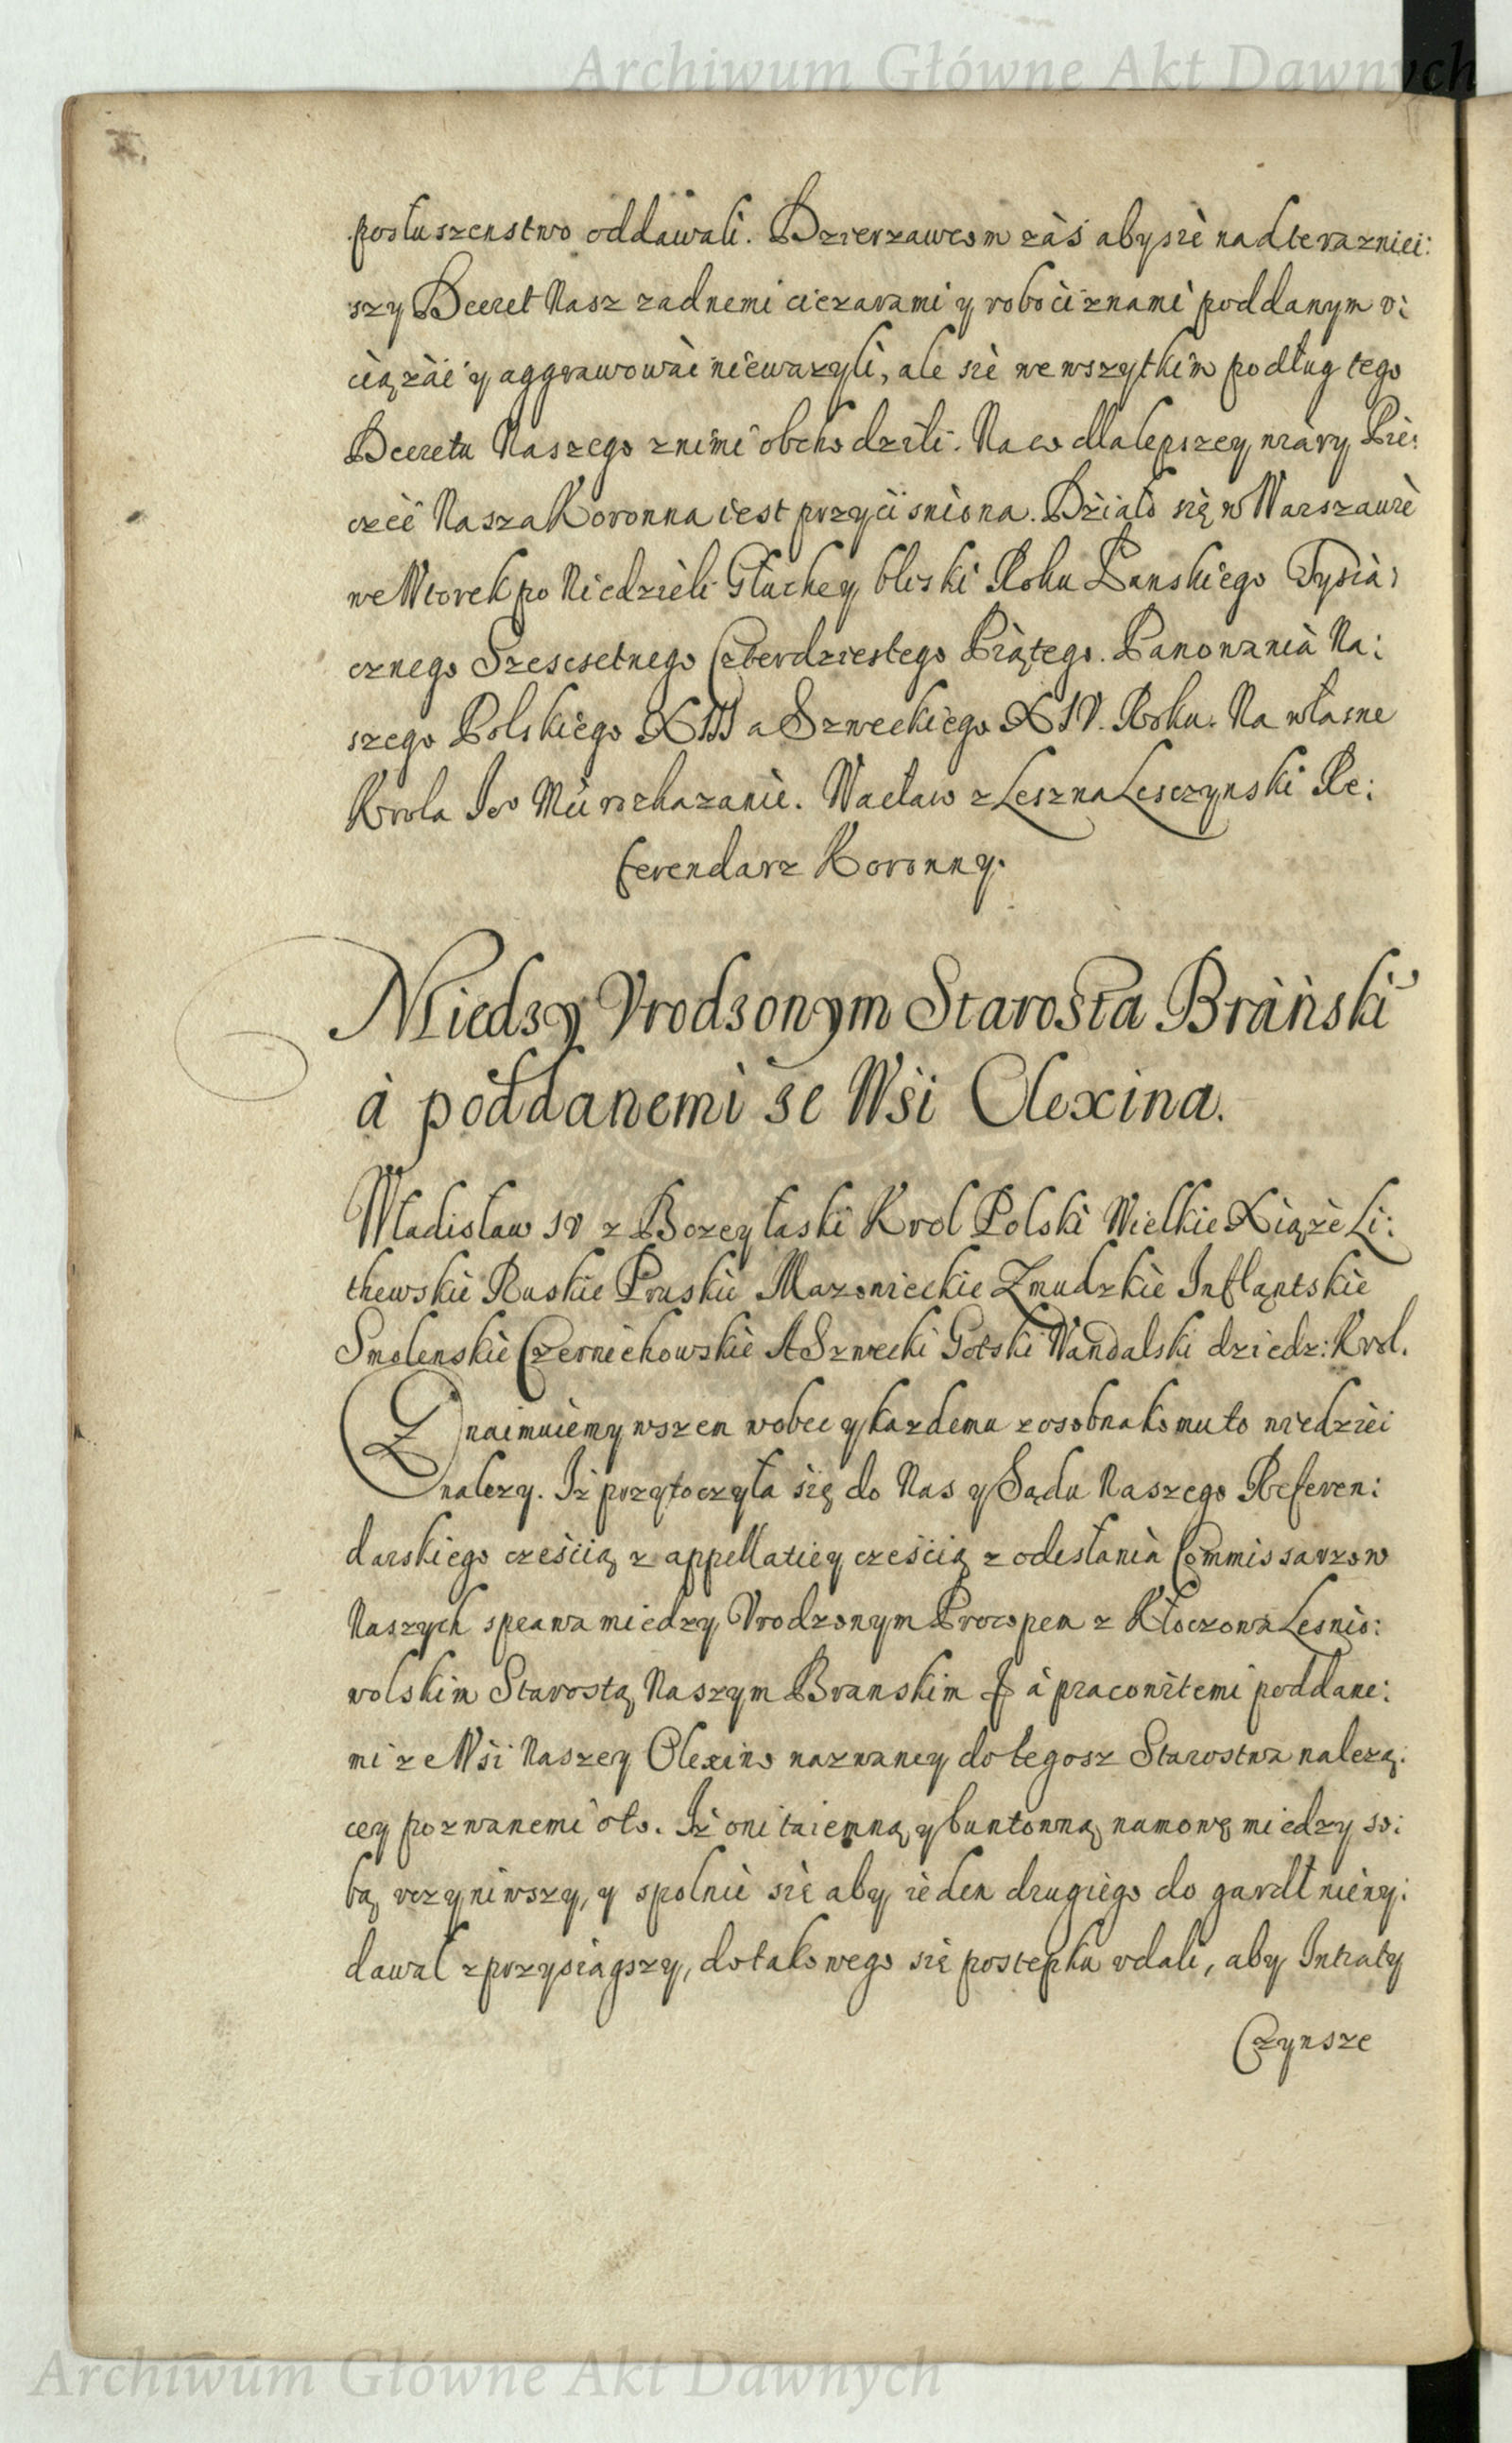 Archiwum Główne Akt Dawnych
posłuszenstwo oddawali. Dzierzawcom zàś abysiè nadterazniei:
szy Decret Nasz zadnemi ciezarami y robociznami poddanym v:
ciązáć y aggrawowáć niewazyli, ale siè we wszytkim podług tego
Decretu Naszego znimi obchodzili. Naco dlalepszey wiary Pie:
częć Nasza Koronna iest przyciśniona. Działo się w Warszawie
we Wtorek po Niedzieli Głuchey bliski Roku Panskiego Tysiá:
cznego Szescsetnego Czterdziestego Piątego. Panowania Na:
szego Polskiego XIII a Szweckiego XIV. Roku. Na własne
Krola Jeo Mći rozkazanie. Wacław z Leszna Lesczynski Re:
ferendarz Koronny.
Miedzy Vrodzonym Starostą Bráński
à poddanemi ze Wśi Olexina.
Władisław IV z Bozey łaski Krol Polski Wielkie Xiąże Li:
thewskie Ruskie Pruskie Mazowieckie Zmudzkie Inflantskie
Smolenskie Czerniehowskie A Szwecki Gotski Wandalski dziedz: Krol.
Znaimuiemy wszem wobec y kazdemu zosobna komu to wiedziei
nalezy. Iż przytoczyła się do Nas y Sądu Naszego Referen:
darskiego cześcią z appellatiey cześcią z odesłania Commissarzow
Naszych sprawa miedzy Vrodzonym Procopem z Kłoczowa Lesnio:
wolskim Starostą Naszym Branskim à pracowitemi poddane:
mi ze Wśi Naszey Olexino nazwaney do tegosz Starostwa nalezą:
cey pozwanemi oto. Iż oni taiemną y buntowną namowę miedzy so:
bą vczyniwszy, y spolnie się aby ieden drugiego do gardł niewy:
dawał zprzysiągszy, dotakowego się postępku vdali, aby Intraty
Czynsze
Archiwum Główne Akt Dawnych